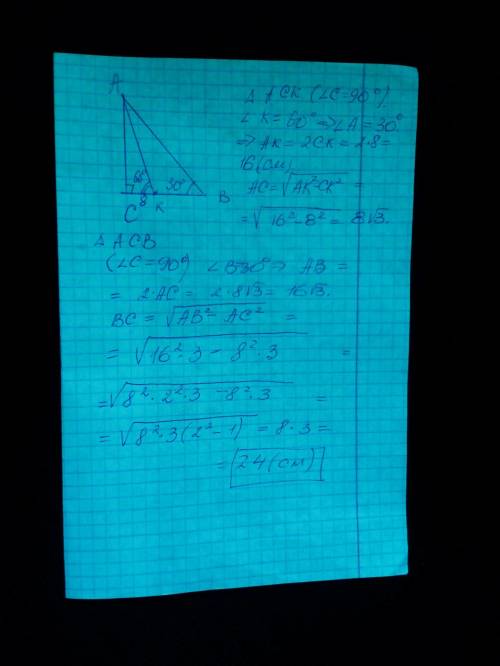 A
60°
30°
8
C
K
B
△ ACK (∠C=90°).
∠K = 60° ⇒ ∠A = 30°.
⇒ AK = 2CK = 2·8 =
16 (см)
AC = √AK²-CK² =
= √16²-8² = 8√3.
△ ACB
(∠C=90°) ∠B=30° ⇒ AB =
= 2·AC = 2·8√3 = 16√3.
BC = √AB² - AC² =
= √16²·3 - 8²·3 =
= √8²·2²·3 - 8²·3 =
= √8²·3(2²-1) = 8·3 =
= 24 (см)